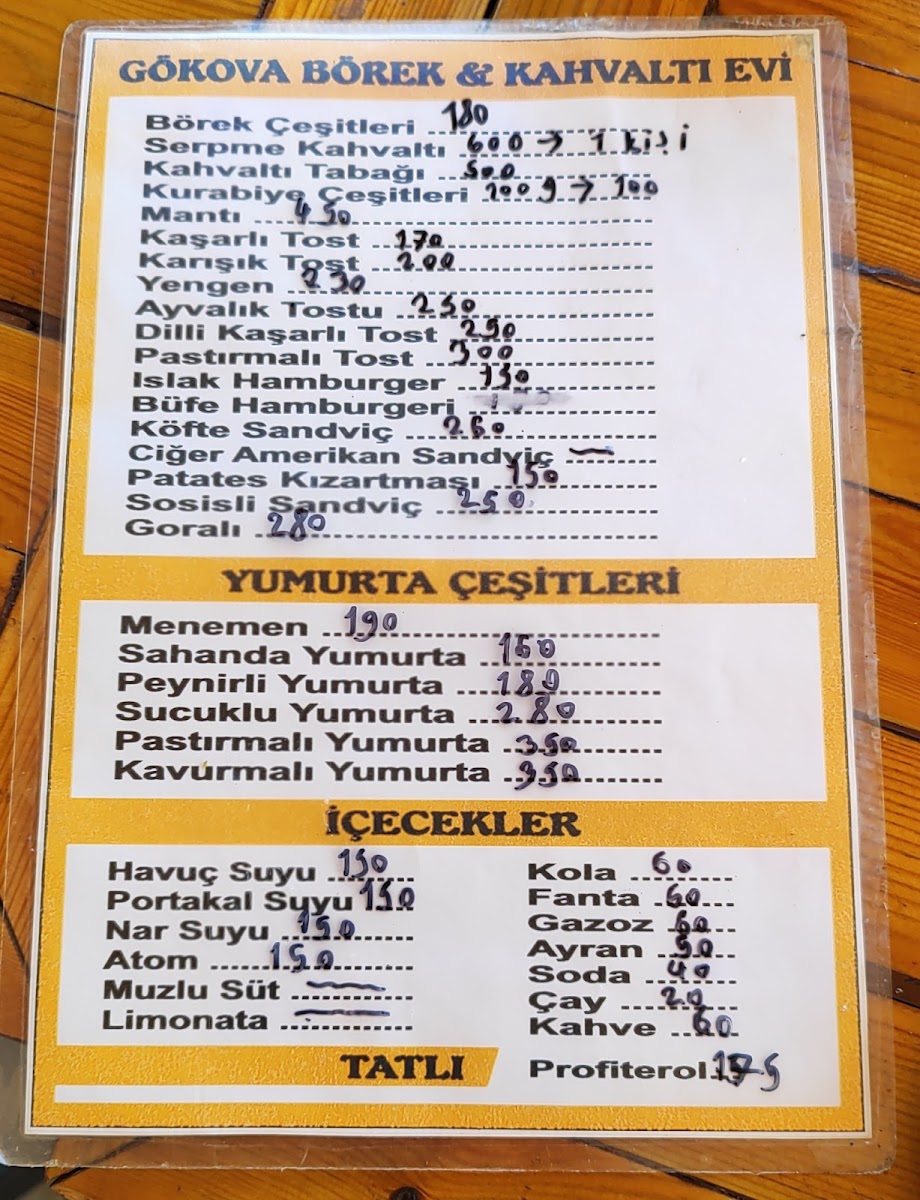 GÖKOVA BÖREK & KAHVALTI EVİ
Börek Çeşitleri 180
Serpme Kahvaltı 600 → 1 kişi
Kahvaltı Tabağı 500
Kurabiye Çeşitleri 100 g → 100
Mantı 450
Kaşarlı Tost 170
Karışık Tost 200
Yengen 230
Ayvalık Tostu 250
Dilli Kaşarlı Tost 290
Pastırmalı Tost 300
Islak Hamburger 150
Büfe Hamburgeri
Köfte Sandviç 260
Ciğer Amerikan Sandviç —
Patates Kızartması 150
Sosisli Sandviç 250
Goralı 280
YUMURTA ÇEŞİTLERİ
Menemen 190
Sahanda Yumurta 160
Peynirli Yumurta 180
Sucuklu Yumurta 280
Pastırmalı Yumurta 350
Kavurmalı Yumurta 350
İÇECEKLER
Havuç Suyu 150
Portakal Suyu 150
Nar Suyu 150
Atom 150
Muzlu Süt —
Limonata —
Kola 60
Fanta 60
Gazoz 60
Ayran 50
Soda 40
Çay 20
Kahve 60
TATLI
Profiterol 175